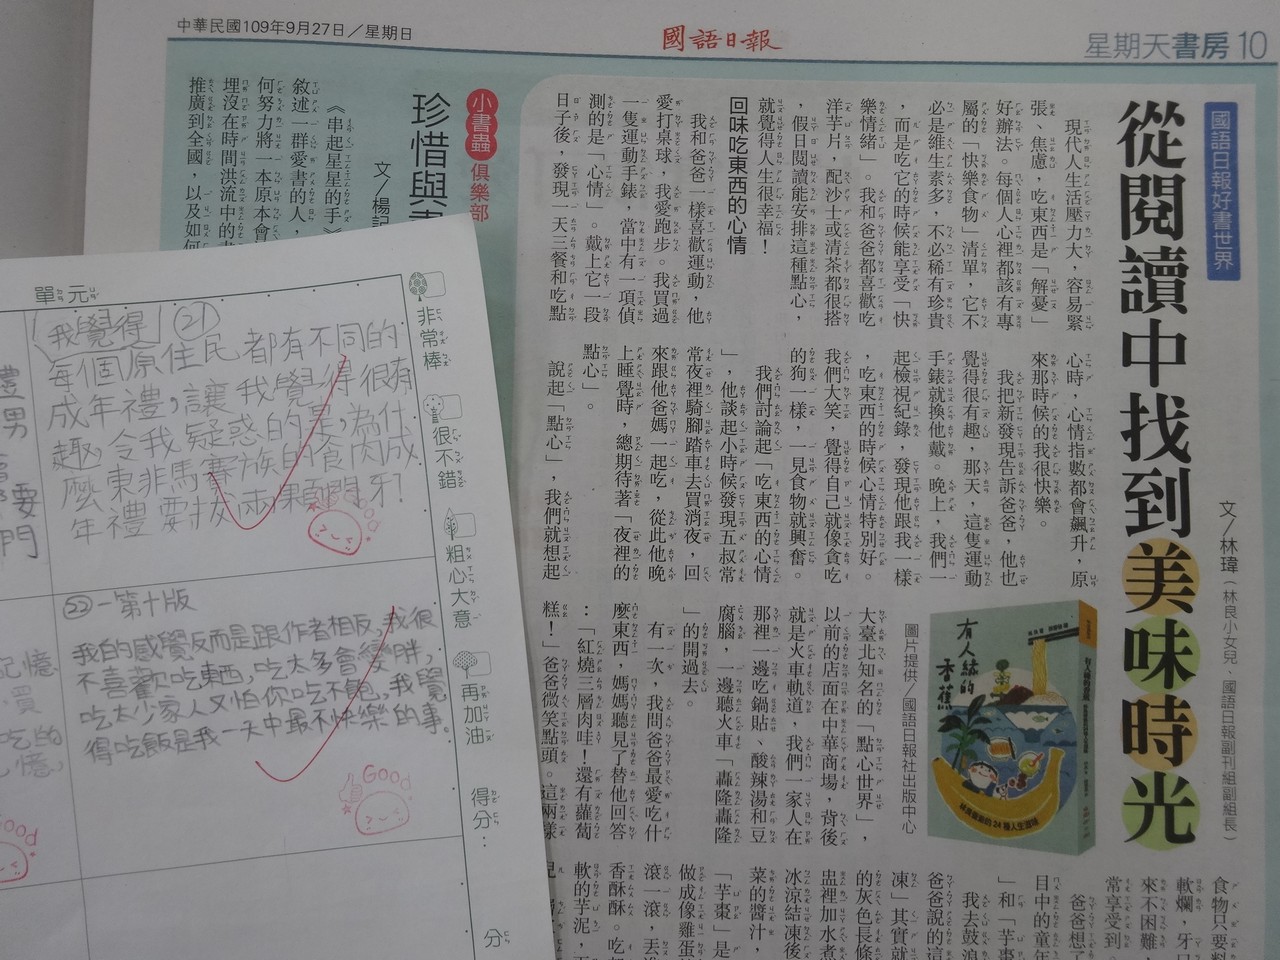 中華民國109年9月27日／星期日
國語日報
星期天書房 10
國語日報好書世界
從閱讀中找到美味時光
文／林瑋（林良小女兒、國語日報副刊組副組長）
現代人生活壓力大，容易緊
張、焦慮，吃東西是「解憂」
好辦法。每個人心裡都該有專
屬的「快樂食物」清單，它不
必是維生素多，不必稀有珍貴
，而是吃它的時候能享受「快
樂情緒」。我和爸爸都喜歡吃
洋芋片，配沙士或清茶都很搭
，假日閱讀能安排這種點心，
就覺得人生很幸福！
回味吃東西的心情
我和爸爸一樣喜歡運動，他
愛打桌球，我愛跑步。我買過
一隻運動手錶，當中有一項偵
測的是「心情」。戴上它一段
日子後，發現一天三餐和吃點
心時，心情指數都會飆升，原
來那時候的我很快樂。
我把新發現告訴爸爸，他也
覺得很有趣，那天，這隻運動
手錶就換他戴。晚上，我們一
起檢視紀錄，發現他跟我一樣
，吃東西的時候心情特別好。
我們大笑，覺得自己就像貪吃
的狗一樣，一見食物就興奮。
我們討論起「吃東西的心情
」，他談起小時候發現五叔常
常夜裡騎腳踏車去買消夜，回
來跟他爸媽一起吃，從此他晚
上睡覺時，總期待著「夜裡的
點心」。
說起「點心」，我們就想起
大臺北知名的「點心世界」，
以前的店面在中華商場，背後
就是火車軌道，我們一家人在
那裡一邊吃鍋貼、酸辣湯和豆
腐腦，一邊聽火車「轟隆轟隆
」的開過去。
有一次，我問爸爸最愛吃什
麼東西，媽媽聽見了替他回答
：「紅燒三層肉哇！還有蘿蔔
糕！」爸爸微笑點頭。這兩樣
食物只要料
軟爛，牙口
來不困難，
常享受到。
爸爸想了
目中的童年
」和「芋棗
我去鼓浪
爸爸說的這
凍」其實就
的灰色長條
盅裡加水煮
冰涼結凍後
菜的醬汁，
「芋棗」是
做成像雞蛋
滾一滾，丟進
香酥酥。吃起
軟的芋泥，
圖片提供／國語日報社出版中心
有人緣的香蕉
小書蟲俱樂部
珍惜與書
文／楊記
《串起星星的手》
敘述一群愛書的人，
何努力將一本原本會
埋沒在時間洪流中的書
推廣到全國，以及如何
單元
非常棒
很不錯
粗心大意
再加油
得分：
分
我覺得 ㉑
每個原住民都有不同的
成年禮，讓我覺得很有
趣，令我疑惑的是，為什
麼東非馬賽族的食肉成
年禮要拔兩顆門牙？
㉒－第十版
我的感覺反而是跟作者相反，我很
不喜歡吃東西，吃太多會變胖，
吃太少家人又怕你吃不飽，我覺
得吃飯是我一天中最不快樂的事。
Good
禮男
要
門
記憶
買
吃的
憶，
Good